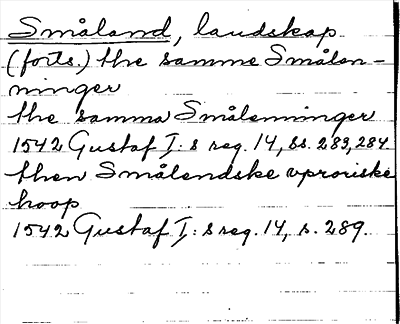 Småland, landskap
(forts.) the samme Smålan-
ninger
the samma Smålenninger
1542 Gustaf I:s reg. 14, ss. 283, 284
then Smålendske uproriske
hoop
1542 Gustaf I:s reg. 14, s. 289.